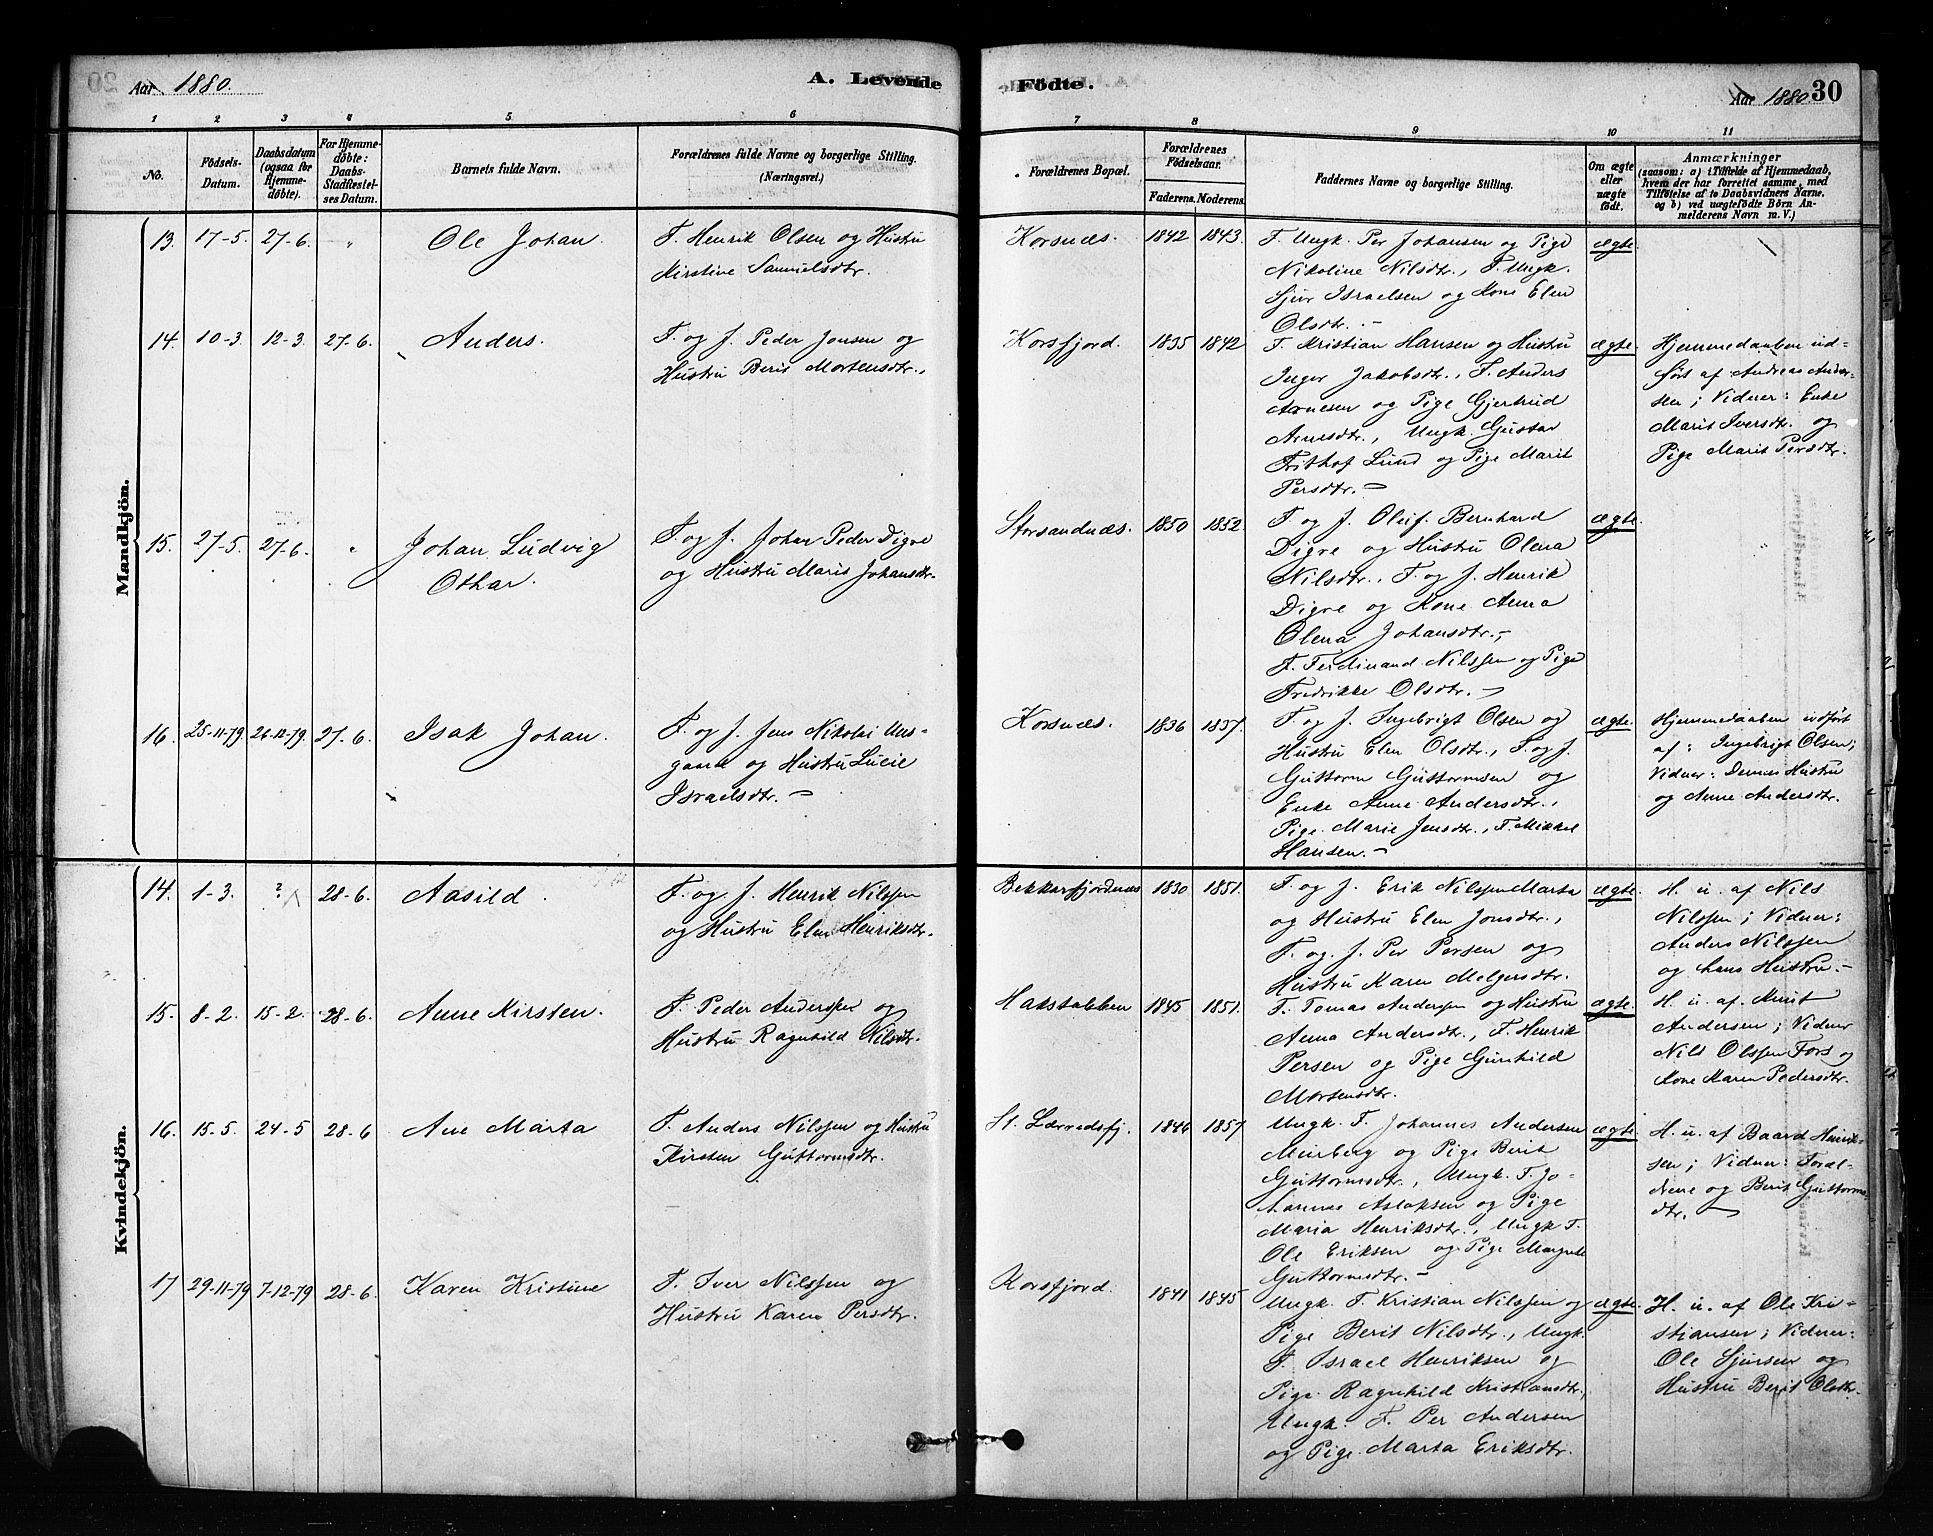 Aar 1880. A. Levende Födte. Aar 1880. 30
1 2 3 4 5 6 7 8 9 10 11
No. Födsels-Datum. Daabsdatum (ogsaa for Hjemmedöbte). For Hjemmedöbte: Daabs-Stadfæstelses Datum. Barnets fulde Navn. Forældrenes fulde Navne og borgerlige Stilling. (Næringsvei.) Forældrenes Bopæl. Forældrenes Födselsaar. Faderens. Moderens. Faddernes Navne og borgerlige Stilling. Om ægte eller uægte födt. Anmærkninger (saasom: a) i Tilfælde af Hjemmedaab, hvem der har forrettet samme, med Tilföielse af to Daabsvidners Navne, og b) ved uægtefödte Börn Anmelderens Navn m. V.)
Mandkjön.
13. 17-5. 27-6. " Ole Johan. F. Henrik Olsen og Hustru Korsnæs. 1842 1843. F. Ungk. Per Johansen og Pige ægte.
Kirstine Samuelsdtr. Nikoline Nilsdtr., F. Ungk.
Sjur Israelsen og Kone Elen
Olsdtr. -
14. 10-3. 12-3. 27-6. Anders. F. og J. Peder Jonsen og Korsfjord. 1835 1842 F. Kristian Hansen og Hustru ægte. Hjemmedaaben ud-
Hustru Berit Mortensdtr. Inger Jakobsdtr., F. Anders ført af Andreas Ander-
Arnesen og Pige Gjertrud sen; Vidner: Enke
Arnesdtr., Ungk. Gustav Marit Iversdtr. og
Frithof Lund og Pige Marit Pige Marit Persdtr.
Persdtr. -
15. 27-5. 27-6. " Johan Ludvig F. og J. Johan Peder Digre Storsandnæs. 1850 1852. F. og J. Oluf Bernhard ægte.
Othar. og Hustru Marit Johansdtr. Digre og Hustru Olena
Nilsdtr., F. og J. Henrik
Digre og Kone Anna
Olena Johansdtr.,
F. Ferdinand Nilssen og Pige
Fredrikke Olsdtr. -
16. 25-11-79. 26-12-79. 27-6. Isak Johan. F. og J. Jens Nikolai Korsnæs. 1836 1837. F. og J. Ingebrigt Olsen og ægte. Hjemmedaaben udført
gaard og Hustru Lucie Hustru Elen Olsdtr., F. og J. af: Ingebrigt Olsen;
Israelsdtr. - Guttorm Guttormsen og Vidner: Dennes Hustru
Enke Anne Andersdtr., og Anne Andersdtr.
Pige Marie Jensdtr., F. Mikkel
Hansen. -
Kvindekjön.
14. 1-3. ? 28-6. Aasild. F. og J. Henrik Nilssen Bekkarfjordnæs 1830 1851. F. og J. Erik Nilssen Marta ægte. H. u. af Nils
og Hustru Elen Henriksdtr. og Hustru Elen Jonsdtr., Nilssen; Vidner:
F. og J. Per Persen og Anders Nilssen
Hustru Karen Melgersdtr. og hans Hustru. -
15. 8-2. 15-2. 28-6. Anne Kirsten. F. Peder Anderssen og Hakstabben 1845 1851. F. Tomas Andersen og Hustru ægte. H. u. af Knut
Hustru Ragnhild Nilsdtr. Anna Andersdtr., F. Henrik Andersen; Vidner
Persen og Pige Gunhild Nils Olssen Fors og
Mortensdtr. Kone Karen Pedersdtr.
16. 15-5. 24-5 28-6 Ane Marta F. Anders Nilssen og Hustru St. Lærredsfj. 1846 1857 Ungk. F. Johannes Andersen ægte. H. u. af Baard Henrik-
Kirsten Guttormsdtr. Murberg og Pige Berit sen; Vidner: Foræl-
Guttormsdtr., Ungk. F. Jo- drene og Berit Guttorms-
hannes Aslaksen og Pige dtr. -
Maria Henriksdtr., Ungk. F.
Ole Eriksen og Pige Margrete
Guttormsdtr. -
17 29-11-79 7-12-79 28-6. Karen Kristine F. Iver Nilssen og Korsfjord. 1841 1845 Ungk. F. Kristian Nilssen og ægte. H. u. af Ole Kri-
Hustru Karen Persdtr. Pige Berit Nilsdtr., Ungk. stiansen; Vidner:
F. Israel Henriksen og Ole Sjursen og
Pige Ragnhild Kristiansdtr., Hustru Berit Olsdtr.
Ungk. F. Per Andersen
og Pige Marta Eriksdtr.